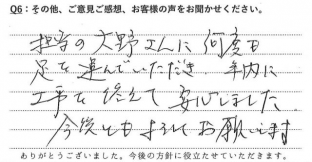 Q6：その他、ご意見ご感想、お客様の声をお聞かせください。
担当の大野さんに何度も
足を運んでいただき、年内に
工事を終えて安心しました。
今後ともよろしくお願いします
ありがとうございました。今後の方針に役立たせていただきます。